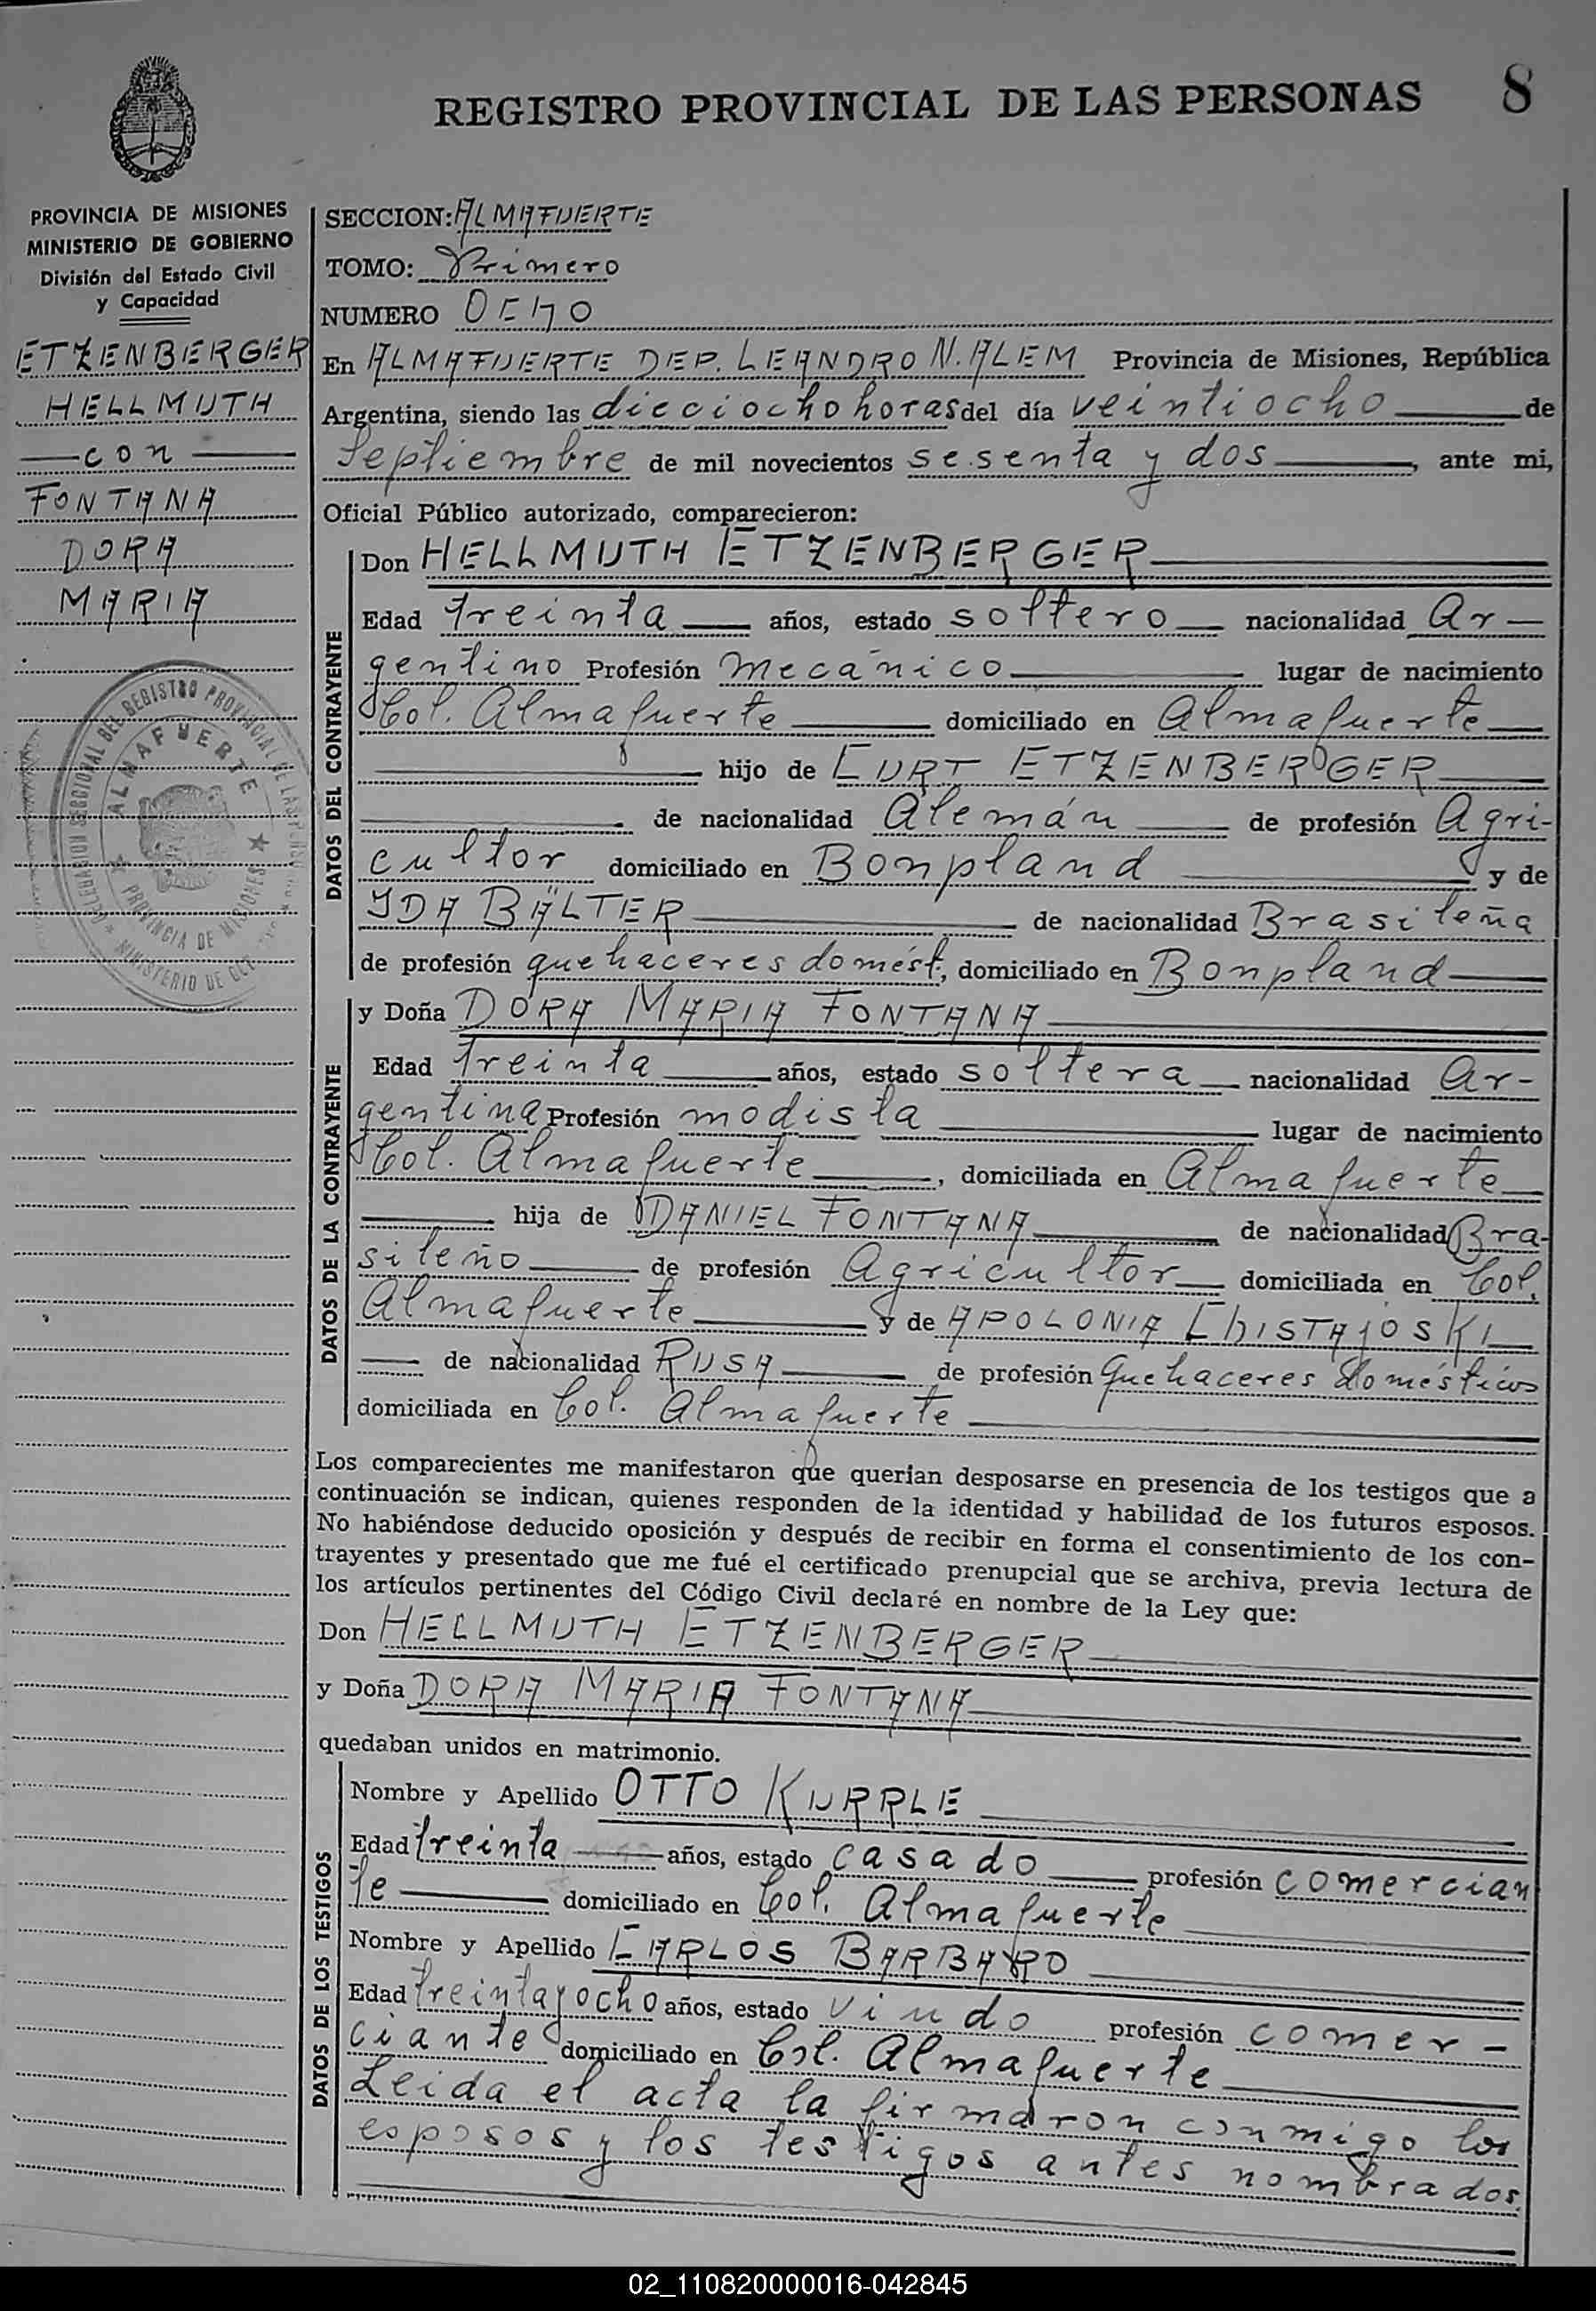 REGISTRO PROVINCIAL DE LAS PERSONAS 8
PROVINCIA DE MISIONES
MINISTERIO DE GOBIERNO
División del Estado Civil
y Capacidad
ETZENBERGER
HELLMUTH
con
FONTANA
DORA
MARIA
DELEGACION SECCIONAL DEL REGISTRO PROVINCIAL DE LAS
ALMAFUERTE
PROVINCIA DE MISIONES
MINISTERIO DE
SECCION: ALMAFUERTE
TOMO: Primero
NUMERO OCHO
En ALMAFUERTE DEP. LEANDRO N. ALEM Provincia de Misiones, República
Argentina, siendo las dieciocho horas del día veintiocho de
Septiembre de mil novecientos sesenta y dos, ante mi,
Oficial Público autorizado, comparecieron:
DATOS DEL CONTRAYENTE
Don HELLMUTH ETZENBERGER
Edad treinta años, estado soltero nacionalidad Ar-
gentino Profesión mecánico lugar de nacimiento
Col. Almafuerte domiciliado en Almafuerte
hijo de CURT ETZENBERGER
de nacionalidad Alemán de profesión Agri-
cultor domiciliado en Bonpland y de
IDA BÄLTER de nacionalidad Brasileña
de profesión quehaceres domést., domiciliado en Bonpland
DATOS DE LA CONTRAYENTE
y Doña DORA MARIA FONTANA
Edad treinta años, estado soltera nacionalidad Ar-
gentina Profesión modista lugar de nacimiento
Col. Almafuerte, domiciliada en Almafuerte
hija de DANIEL FONTANA de nacionalidad Bra-
sileño de profesión Agricultor domiciliada en Col.
Almafuerte y de APOLONIA
de nacionalidad RUSA de profesión Quehaceres domésticos
domiciliada en Col. Almafuerte
Los comparecientes me manifestaron que querian desposarse en presencia de los testigos que a
continuación se indican, quienes responden de la identidad y habilidad de los futuros esposos.
No habiéndose deducido oposición y después de recibir en forma el consentimiento de los con-
trayentes y presentado que me fué el certificado prenupcial que se archiva, previa lectura de
los artículos pertinentes del Código Civil declaré en nombre de la Ley que:
Don HELLMUTH ETZENBERGER
y Doña DORA MARIA FONTANA
quedaban unidos en matrimonio.
DATOS DE LOS TESTIGOS
Nombre y Apellido OTTO KURRLE
Edad treinta años, estado casado profesión comercian
te domiciliado en Col. Almafuerte
Nombre y Apellido CARLOS BARBARO
Edad treinta y ocho años, estado viudo profesión comer-
ciante domiciliado en Col. Almafuerte
Leida el acta la firmaron conmigo los
esposos y los testigos antes nombrados.
02_110820000016-042845